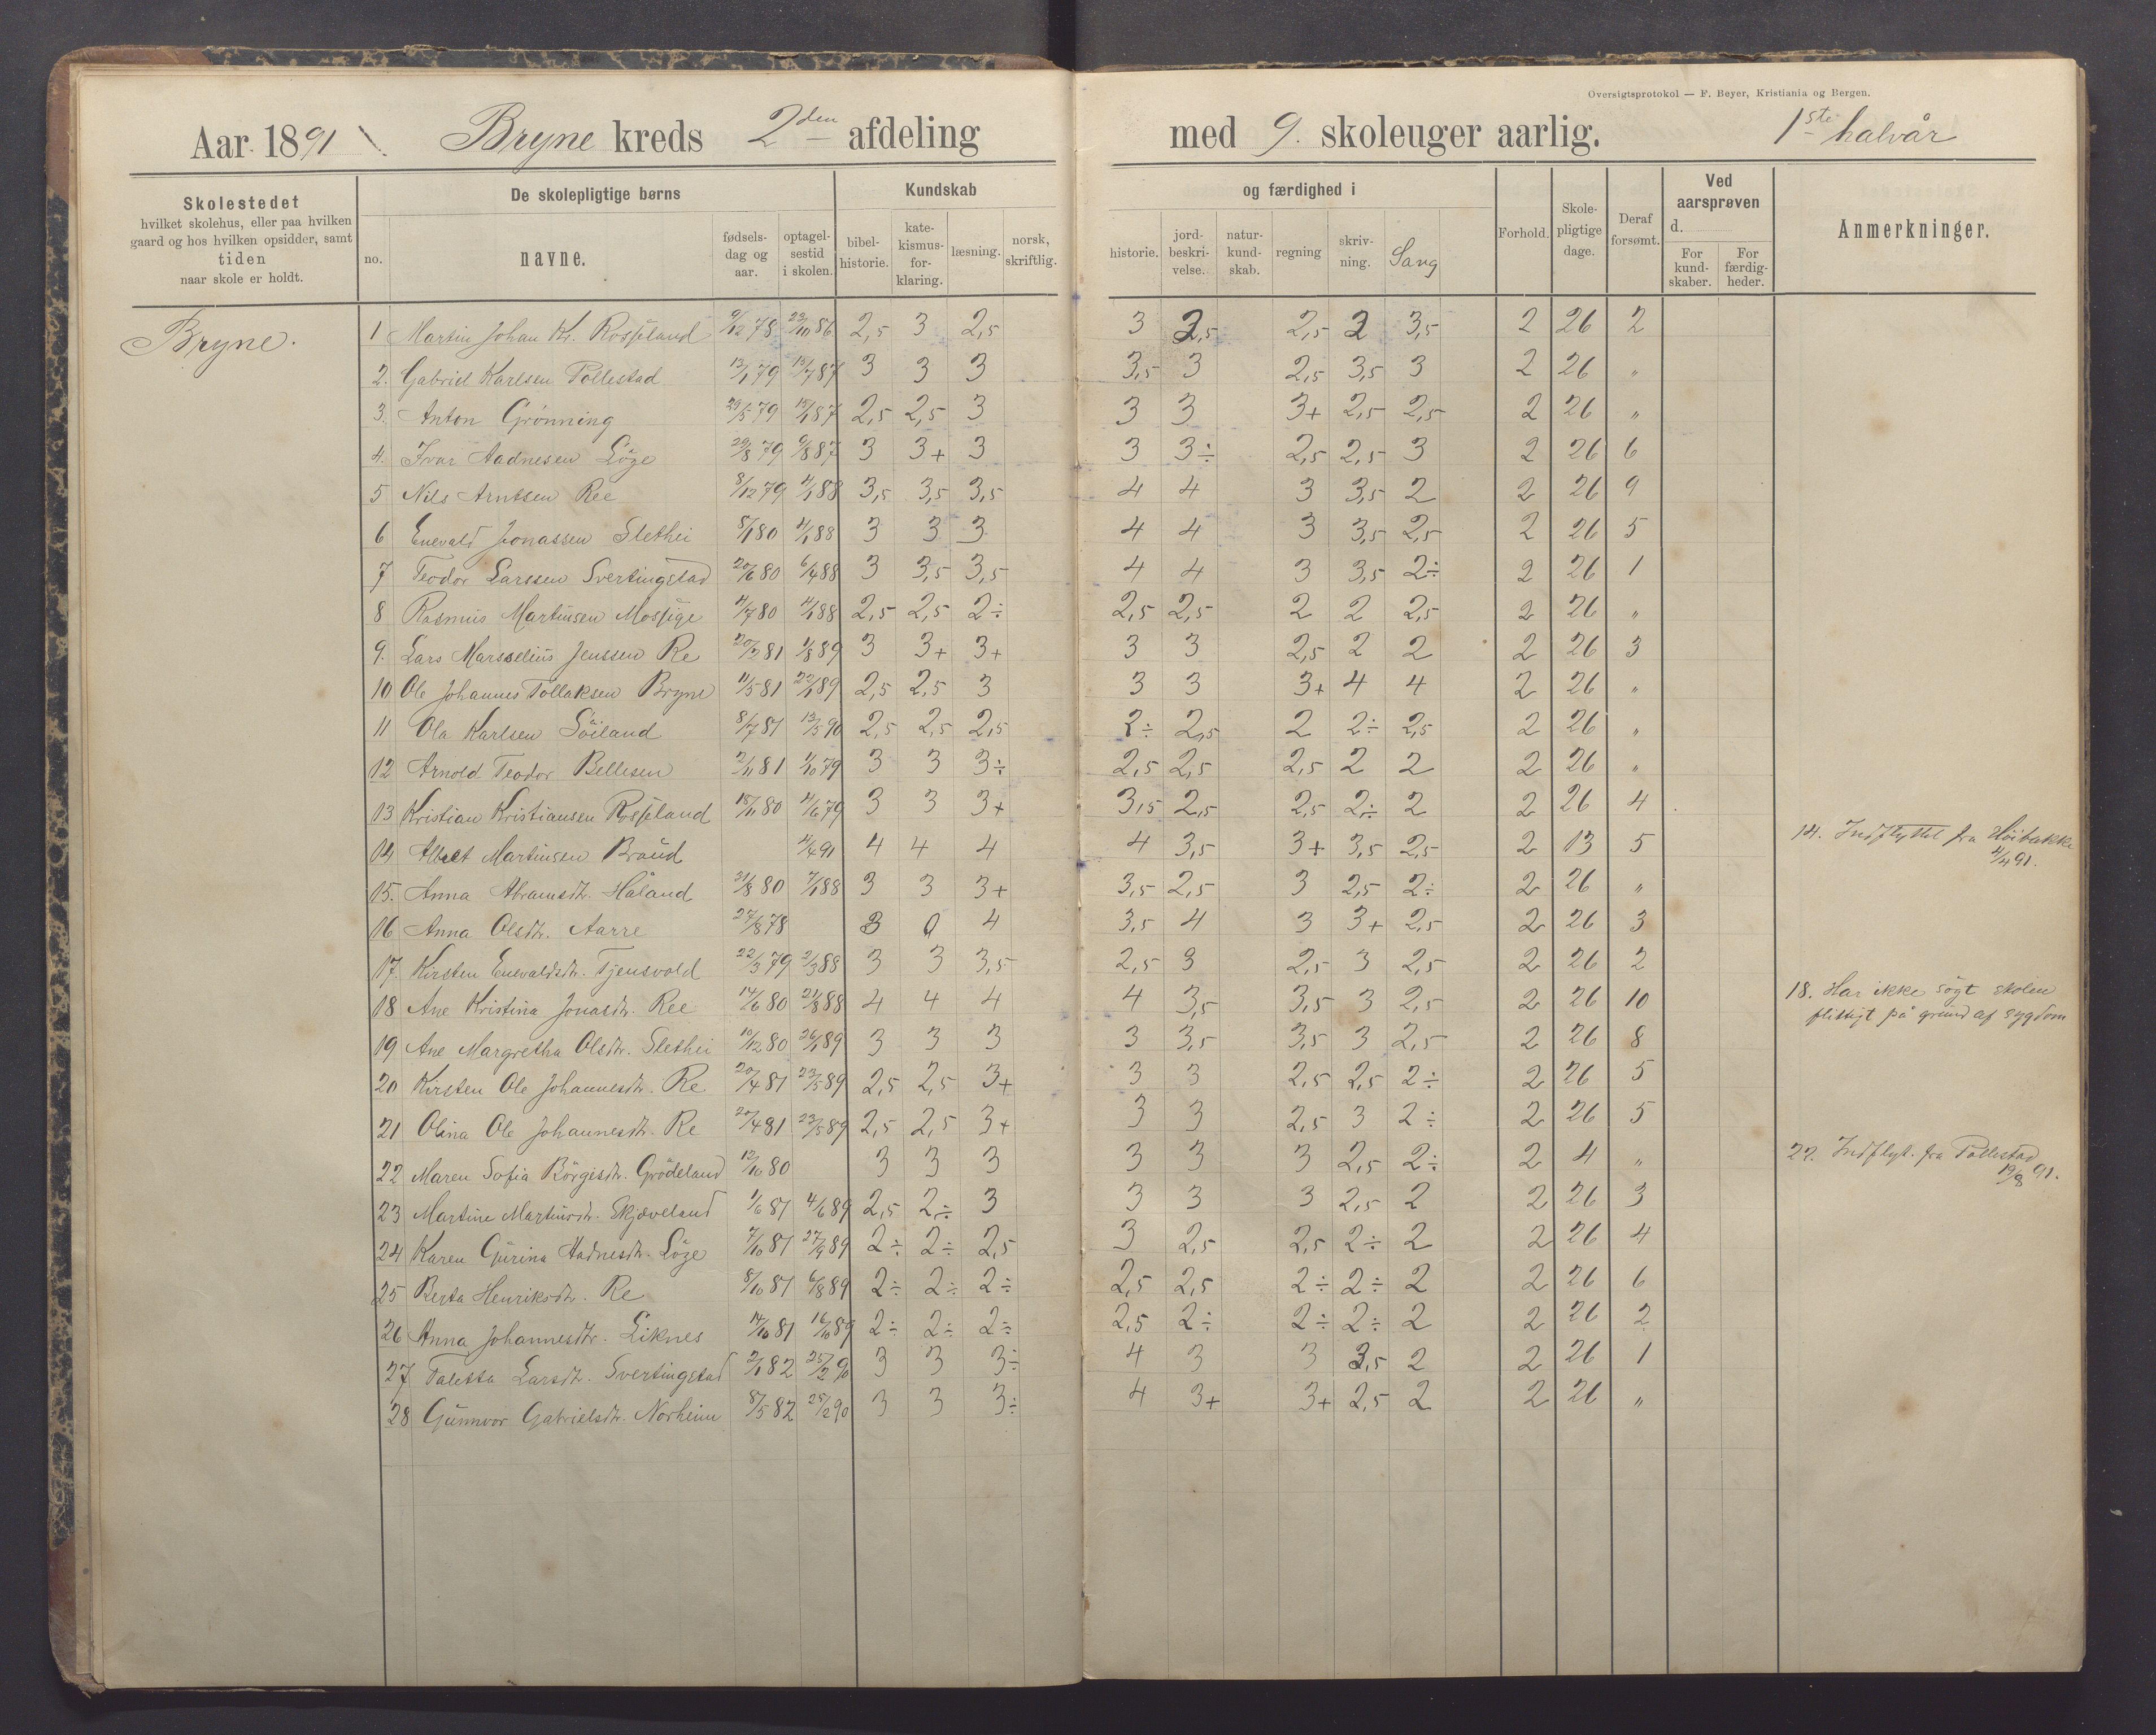 Oversigtsprotokol — F. Beyer, Kristiania og Bergen.
Aar 1891 Bryne kreds 2den afdeling med 9. skoleuger aarlig. 1ste halvår
Skolestedet hvilket skolehus, eller paa hvilken gaard og hos hvilken opsidder, samt tiden naar skole er holdt.
De skolepligtige børns
no. navne. fødselsdag og aar. optagelsestid i skolen.
Kundskab og færdighed i
bibelhistorie. katekismusforklaring. læsning. norsk, skriftlig. historie. jordbeskrivelse. naturkundskab. regning skrivning. Sang
Forhold. Skolepligtige dage. Deraf forsømt.
Ved aarsprøven d.
For kundskaber. For færdigheder.
Anmerkninger.
Bryne.
1 Martin Johan Kr. Rosseland 9/12 78 23/10 86 2,5 3 2,5 3 2,5 2,5 2 3,5 2 26 2
2. Gabriel Karlsen Pollestad 13/1 79 13/7 87 3 3 3 3,5 3 2,5 3,5 3 2 26 "
3. Anton Grönning 29/5 79 15/1 87 2,5 2,5 3 3 3 3+ 2,5 2,5 2 26 "
4. Ivar Aadnesen Löge 29/8 79 9/8 87 3 3+ 3 3 3÷ 2,5 2,5 3 2 26 6
5 Nils Arntsen Ree 8/12 79 4/1 88 3,5 3,5 3,5 4 4 3 3,5 2 2 26 9
6 Enevald Jonassen Slethei 5/1 80 4/1 88 3 3 3 4 4 3 3,5 2,5 2 26 5
7 Teodor Larssen Svertingstad 20/6 80 6/4 88 3 3,5 3,5 4 4 3 3,5 2÷ 2 26 1
8 Rasmus Martinsen Mossige 4/7 80 4/1 88 2,5 2,5 2÷ 2,5 2,5 2 2 2,5 2 26 "
9. Lars Marselius Jenssen Re 20/2 81 1/8 89 3 3+ 3+ 3 3 2,5 2 2 2 26 3
10 Ole Johannes Tollaksen Bryne 11/5 81 22/1 89 2,5 2,5 3 3 3 3+ 4 4 2 26 "
11 Ola Karlsen Söiland 8/7 81 13/5 90 2,5 2,5 2,5 2÷ 2,5 2 2÷ 2,5 2 26 "
12 Arnold Teodor Bellesen 2/11 81 1/10 79 3 3 3÷ 2,5 2,5 2,5 2 2 2 26 "
13 Kristian Kristiansen Rosseland 18/11 80 4/6 79 3 3 3+ 3,5 2,5 2,5 2÷ 2 2 26 4
14 Albert Martinsen Braud 4/4 91 4 4 4 4 3,5 3+ 3,5 2,5 2 13 5 14. Indflyttet fra Höibakke 4/4 91.
15. Anna Abramsdtr. Håland 31/8 80 7/1 88 3 3 3+ 3,5 2,5 3 2,5 2÷ 2 26 "
16 Anna Olsdtr. Aarre 27/8 78 3 0 4 3,5 4 3 3+ 2,5 2 26 3
17. Kirsten Enevaldsdtr. Tjensvold 22/3 79 2/3 88 3 3 3,5 2,5 3 2,5 3 2,5 2 26 2
18 Ane Kristina Jonasdtr. Ree 14/6 80 21/8 88 4 4 4 4 3,5 3,5 3 2,5 2 26 10 18. Har ikke sögt skolen flittigt på grund af sygdom
19 Ane Margretha Olsdtr. Slethei 10/12 80 26/1 89 3 3 3 3 3,5 3,5 3 2,5 2 26 8
20 Kirsten Ole Johannesdtr. Re 20/4 81 23/5 89 2,5 2,5 3+ 3 3 2,5 2,5 2÷ 2 26 5
21 Olina Ole Johannesdtr. Re 20/4 81 23/5 89 2,5 2,5 3+ 3 3 2,5 3 2÷ 2 26 5
22 Maren Sofia Börgesdtr. Grödeland 12/10 80 3 3 3 3 3 3 2,5 2÷ 2 4 " 22. Indflyt. fra Pollestad 19/8 91.
23 Martine Martinsdtr. Skjæveland 1/6 81 4/6 89 2,5 2÷ 3 3 3 3 2,5 2 2 26 3
24 Karen Gurina Hadnesdtr. Löge 7/10 81 27/9 89 2÷ 2÷ 2,5 3 2,5 2,5 2÷ 2 2 26 4
25 Berta Henriksdtr. Re 8/10 81 6/8 89 2÷ 2÷ 2÷ 2,5 2,5 2÷ 2÷ 2 2 26 6
26 Anna Johannesdtr. Liknes 14/10 81 16/10 89 2÷ 2÷ 2÷ 2,5 2÷ 2÷ 2÷ 2 2 26 2
27 Taletta Larsdtr. Svertingstad 2/1 82 25/2 90 3 3 3÷ 4 3 3 3,5 2 2 26 1
28 Gunnvor Gabrielsdtr. Norheim 8/5 82 25/2 90 3 3 3÷ 4 3+ 3+ 2,5 2 2 26 "